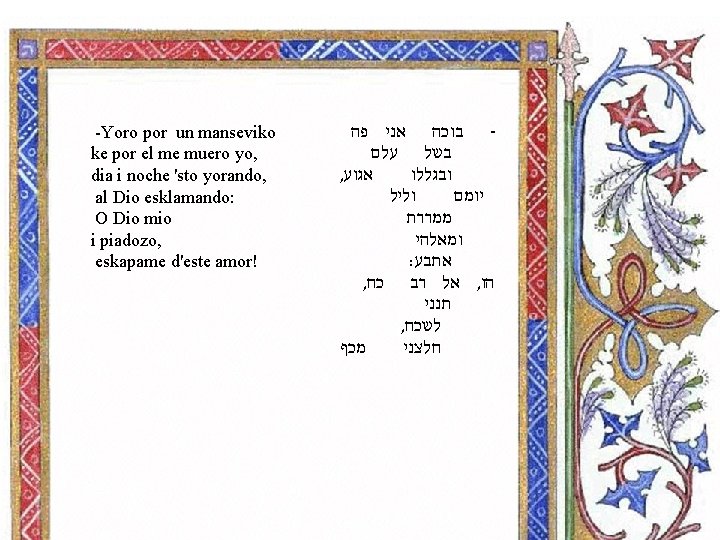 -Yoro por un manseviko
ke por el me muero yo,
dia i noche 'sto yorando,
al Dio esklamando:
O Dio mio
i piadozo,
eskapame d'este amor!
- בוכה אני פה
בשל עלם
ובגללו אגוע,
יומם וליל
ממררת
ומאלהי
אתבע:
חו, אל רב כח,
תנני
לשכח,
חלצני מכף